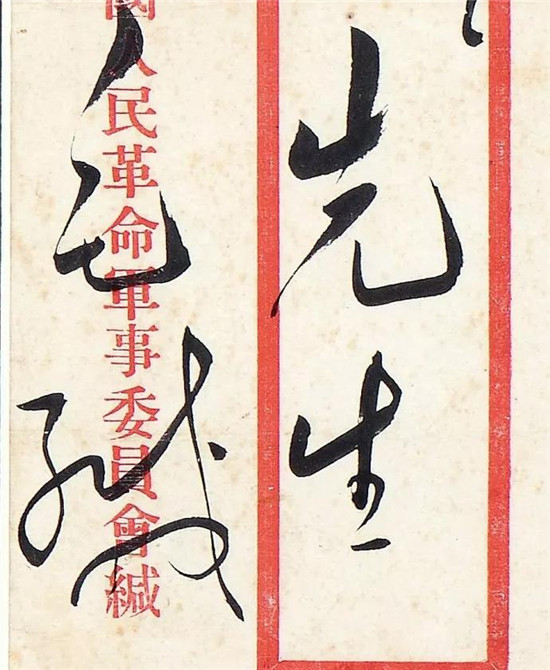 先生
國人民革命軍事委員會緘
毛緘